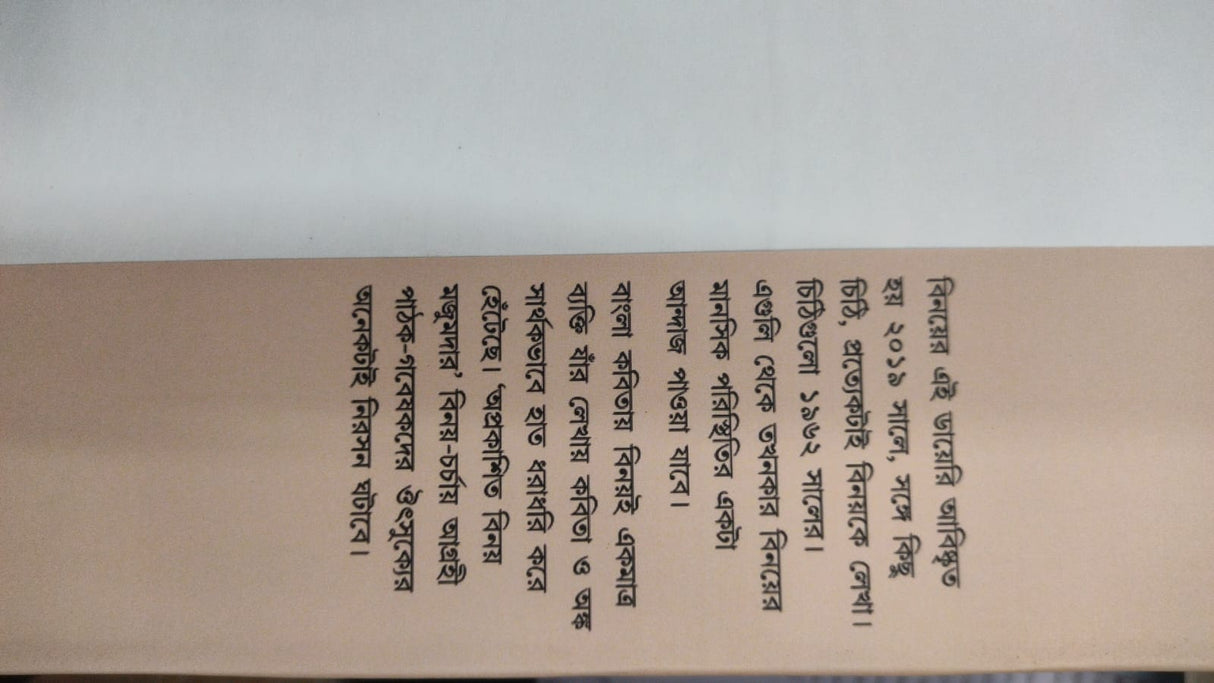 বিনয়ের এই ডায়েরি আবিষ্কৃত
হয় ২০১৯ সালে, সঙ্গে কিছু
চিঠি, প্রত্যেকটাই বিনয়কে লেখা।
চিঠিগুলো ১৯৬২ সালের।
এগুলি থেকে তখনকার বিনয়ের
মানসিক পরিস্থিতির একটা
আন্দাজ পাওয়া যাবে।
বাংলা কবিতায় বিনয়ই একমাত্র
ব্যক্তি যাঁর লেখায় কবিতা ও অঙ্ক
সার্থকভাবে হাত ধরাধরি করে
হেঁটেছে। ‘অপ্রকাশিত বিনয়
মজুমদার’ বিনয়-চর্চায় আগ্রহী
পাঠক-গবেষকদের ঔৎসুক্যের
অনেকটাই নিরসন ঘটাবে।